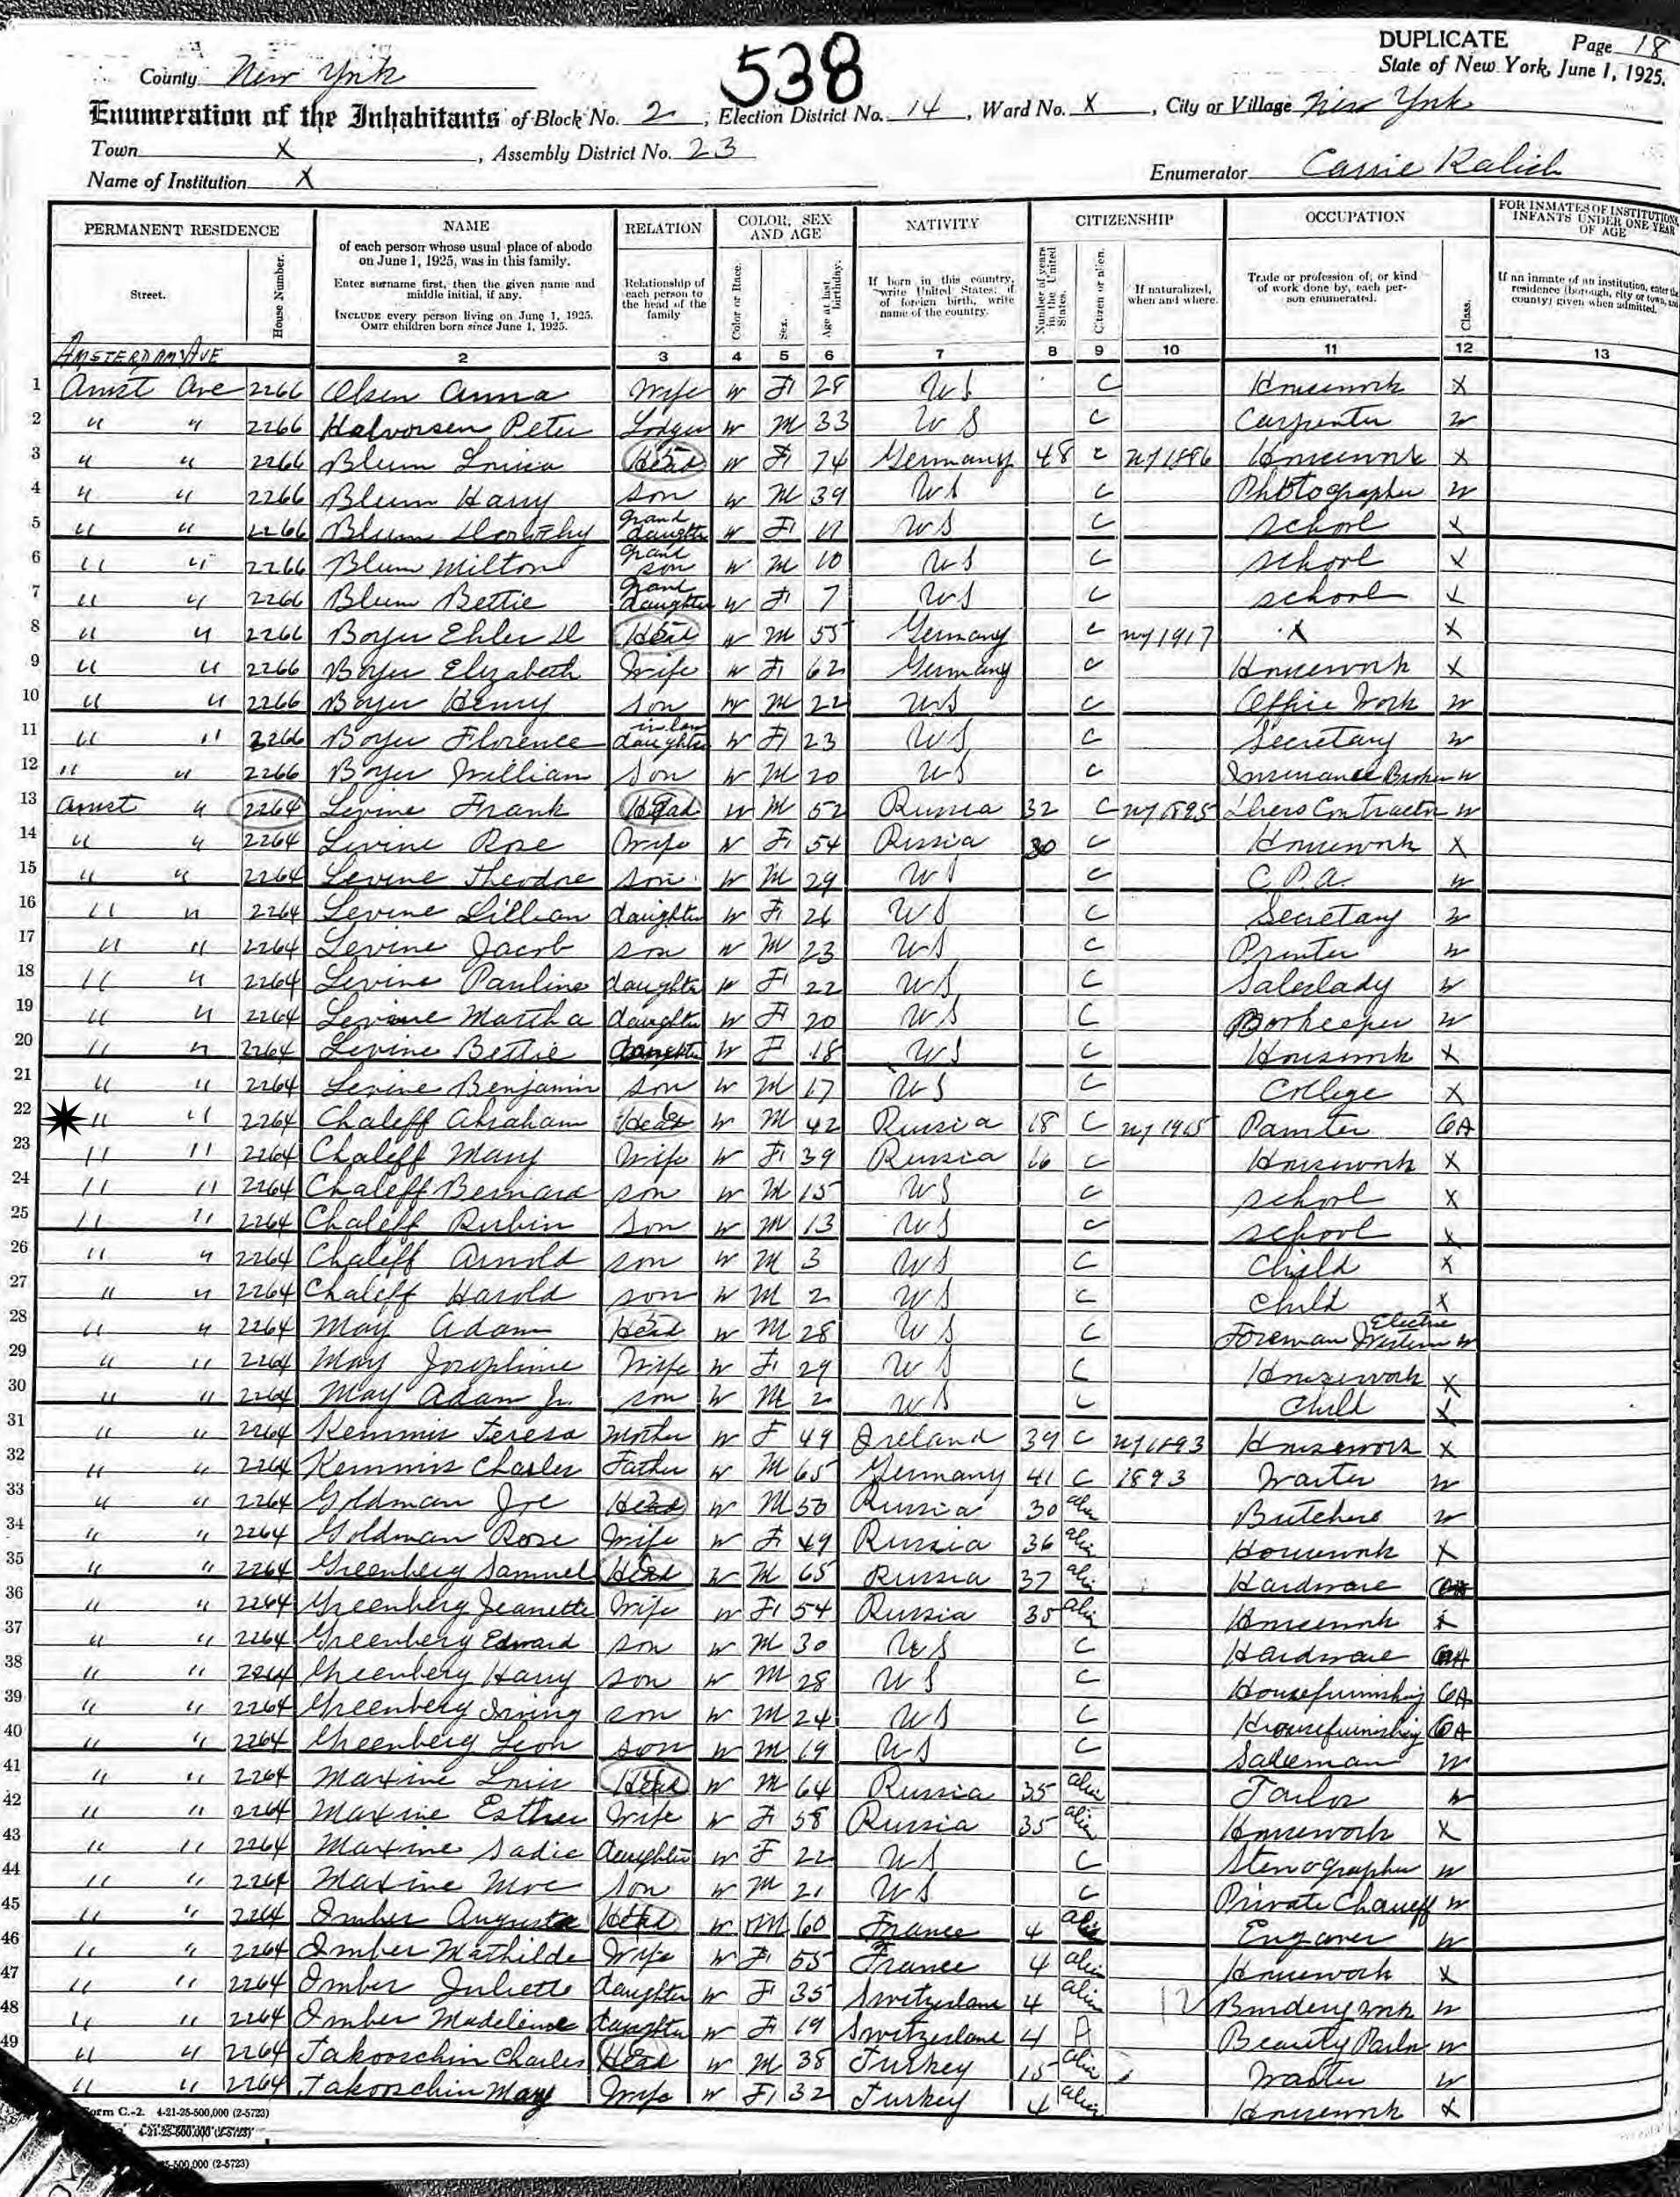 538
DUPLICATE Page 18
State of New York, June 1, 1925.
County New York
Enumeration of the Inhabitants of Block No. 2, Election District No. 14, Ward No. X, City or Village New York
Town X, Assembly District No. 23
Name of Institution X Enumerator Carrie Kalich
PERMANENT RESIDENCE NAME RELATION COLOR, SEX AND AGE NATIVITY CITIZENSHIP OCCUPATION FOR INMATES OF INSTITUTIONS INFANTS UNDER ONE YEAR OF AGE
Street.
House Number.
of each person whose usual place of abode on June 1, 1925, was in this family.
Enter surname first, then the given name and middle initial, if any.
INCLUDE every person living on June 1, 1925.
OMIT children born since June 1, 1925.
Relationship of each person to the head of the family
Color or Race.
Sex.
Age at last birthday.
If born in this country, write United States; if of foreign birth, write name of the country.
Number of years in the United States.
Citizen or alien.
If naturalized, when and where.
Trade or profession of, or kind of work done by, each person enumerated.
Class.
If an inmate of an institution, enter the residence (borough, city or town, county) given when admitted.
AMSTERDAM AVE 2 3 4 5 6 7 8 9 10 11 12 13
1 Amst Ave 2266 Olsen Anna Wife W F 28 US C Housework X
2 " " 2266 Halvorsen Peter Lodger W M 33 US C Carpenter W
3 " " 2266 Blum Louisa Head W F 74 Germany 48 C NY 1886 Housework X
4 " " 2266 Blum Harry son W M 39 US C Photographer W
5 " " 2266 Blum Dorothy grand daughter W F 11 US C school X
6 " " 2266 Blum Milton grand son W M 10 US C school X
7 " " 2266 Blum Bettie grand daughter W F 7 US C school X
8 " " 2266 Boyer Ehler D Head W M 55 Germany C NY 1917 X X
9 " " 2266 Boyer Elizabeth Wife W F 62 Germany C Housework X
10 " " 2266 Boyer Henry son W M 22 US C Office Work W
11 " " 2266 Boyer Florence in law daughter W F 23 US C Secretary W
12 " " 2266 Boyer William Son W M 20 US C Insurance Broker W
13 Amst " 2264 Levine Frank Head W M 52 Russia 32 C NY 1895 Contractor W
14 " " 2264 Levine Rose Wife W F 54 Russia 30 C Housework X
15 " " 2264 Levine Theodre son W M 29 US C C.P.A. W
16 " " 2264 Levine Lillian daughter W F 26 US C Secretary W
17 " " 2264 Levine Jacob son W M 23 US C Printer W
18 " " 2264 Levine Pauline daughter W F 22 US C Saleslady W
19 " " 2264 Levine Martha daughter W F 20 US C Bookeeper W
20 " " 2264 Levine Bettie daughter W F 18 US C Housework X
21 " " 2264 Levine Benjamin son W M 17 US C College X
22 " " 2264 Chaleff Abraham Head W M 42 Russia 18 C NY 1915 Painter OA
23 " " 2264 Chaleff Mary Wife W F 39 Russia 16 C Housework X
24 " " 2264 Chaleff Bernard son W M 15 US C school X
25 " " 2264 Chaleff Rubin Son W M 13 US C school X
26 " " 2264 Chaleff Arnold son W M 3 US C Child X
27 " " 2264 Chaleff Harold son W M 2 US C child X
28 " " 2264 May Adam Head W M 28 US C Foreman Western Electric W
29 " " 2264 May Josephine Wife W F 29 US C Housework X
30 " " 2264 May Adam Jr. son W M 2 US C Child X
31 " " 2264 Kemmis Teresa Mother W F 49 Ireland 39 C NY 1893 Housework X
32 " " 2264 Kemmis Charles Father W M 65 Germany 41 C 1893 Waiter W
33 " " 2264 Goldman Joe Head W M 50 Russia 30 alien Butcher W
34 " " 2264 Goldman Rose Wife W F 49 Russia 36 alien Housework X
35 " " 2264 Greenberg Samuel Head W M 65 Russia 37 alien Hardware OA
36 " " 2264 Greenberg Jeanette Wife W F 54 Russia 35 alien Housework X
37 " " 2264 Greenberg Edward son W M 30 US C Hardware OA
38 " " 2264 Greenberg Harry son W M 28 US C Housefurnishing OA
39 " " 2264 Greenberg Irving son W M 24 US C Housefurnishing OA
40 " " 2264 Greenberg Leon son W M 19 US C Salesman W
41 " " 2264 Maxine Louis Head W M 64 Russia 35 alien Tailor W
42 " " 2264 Maxine Esther Wife W F 58 Russia 35 alien Housework X
43 " " 2264 Maxine Sadie daughter W F 22 US C Stenographer W
44 " " 2264 Maxine Moe Son W M 21 US C Private Chauff W
45 " " 2264 Imber Auguste Head W M 60 France 4 alien Engraver W
46 " " 2264 Imber Mathilde Wife W F 55 France 4 alien Housework X
47 " " 2264 Imber Juliette daughter W F 35 Switzerland 4 alien Bindery work W
48 " " 2264 Imber Madeleine daughter W F 19 Switzerland 4 A Beauty Parlor W
49 " " 2264 Takooschin Charles Head W M 38 Turkey 15 alien Waiter W
" " 2264 Takooschin Mary Wife W F 32 Turkey 4 alien Housework X
Form C.-2. 4-21-25-500,000 (2-5723)
4-21-25-500,000 (2-5723)
25-500,000 (2-5723)